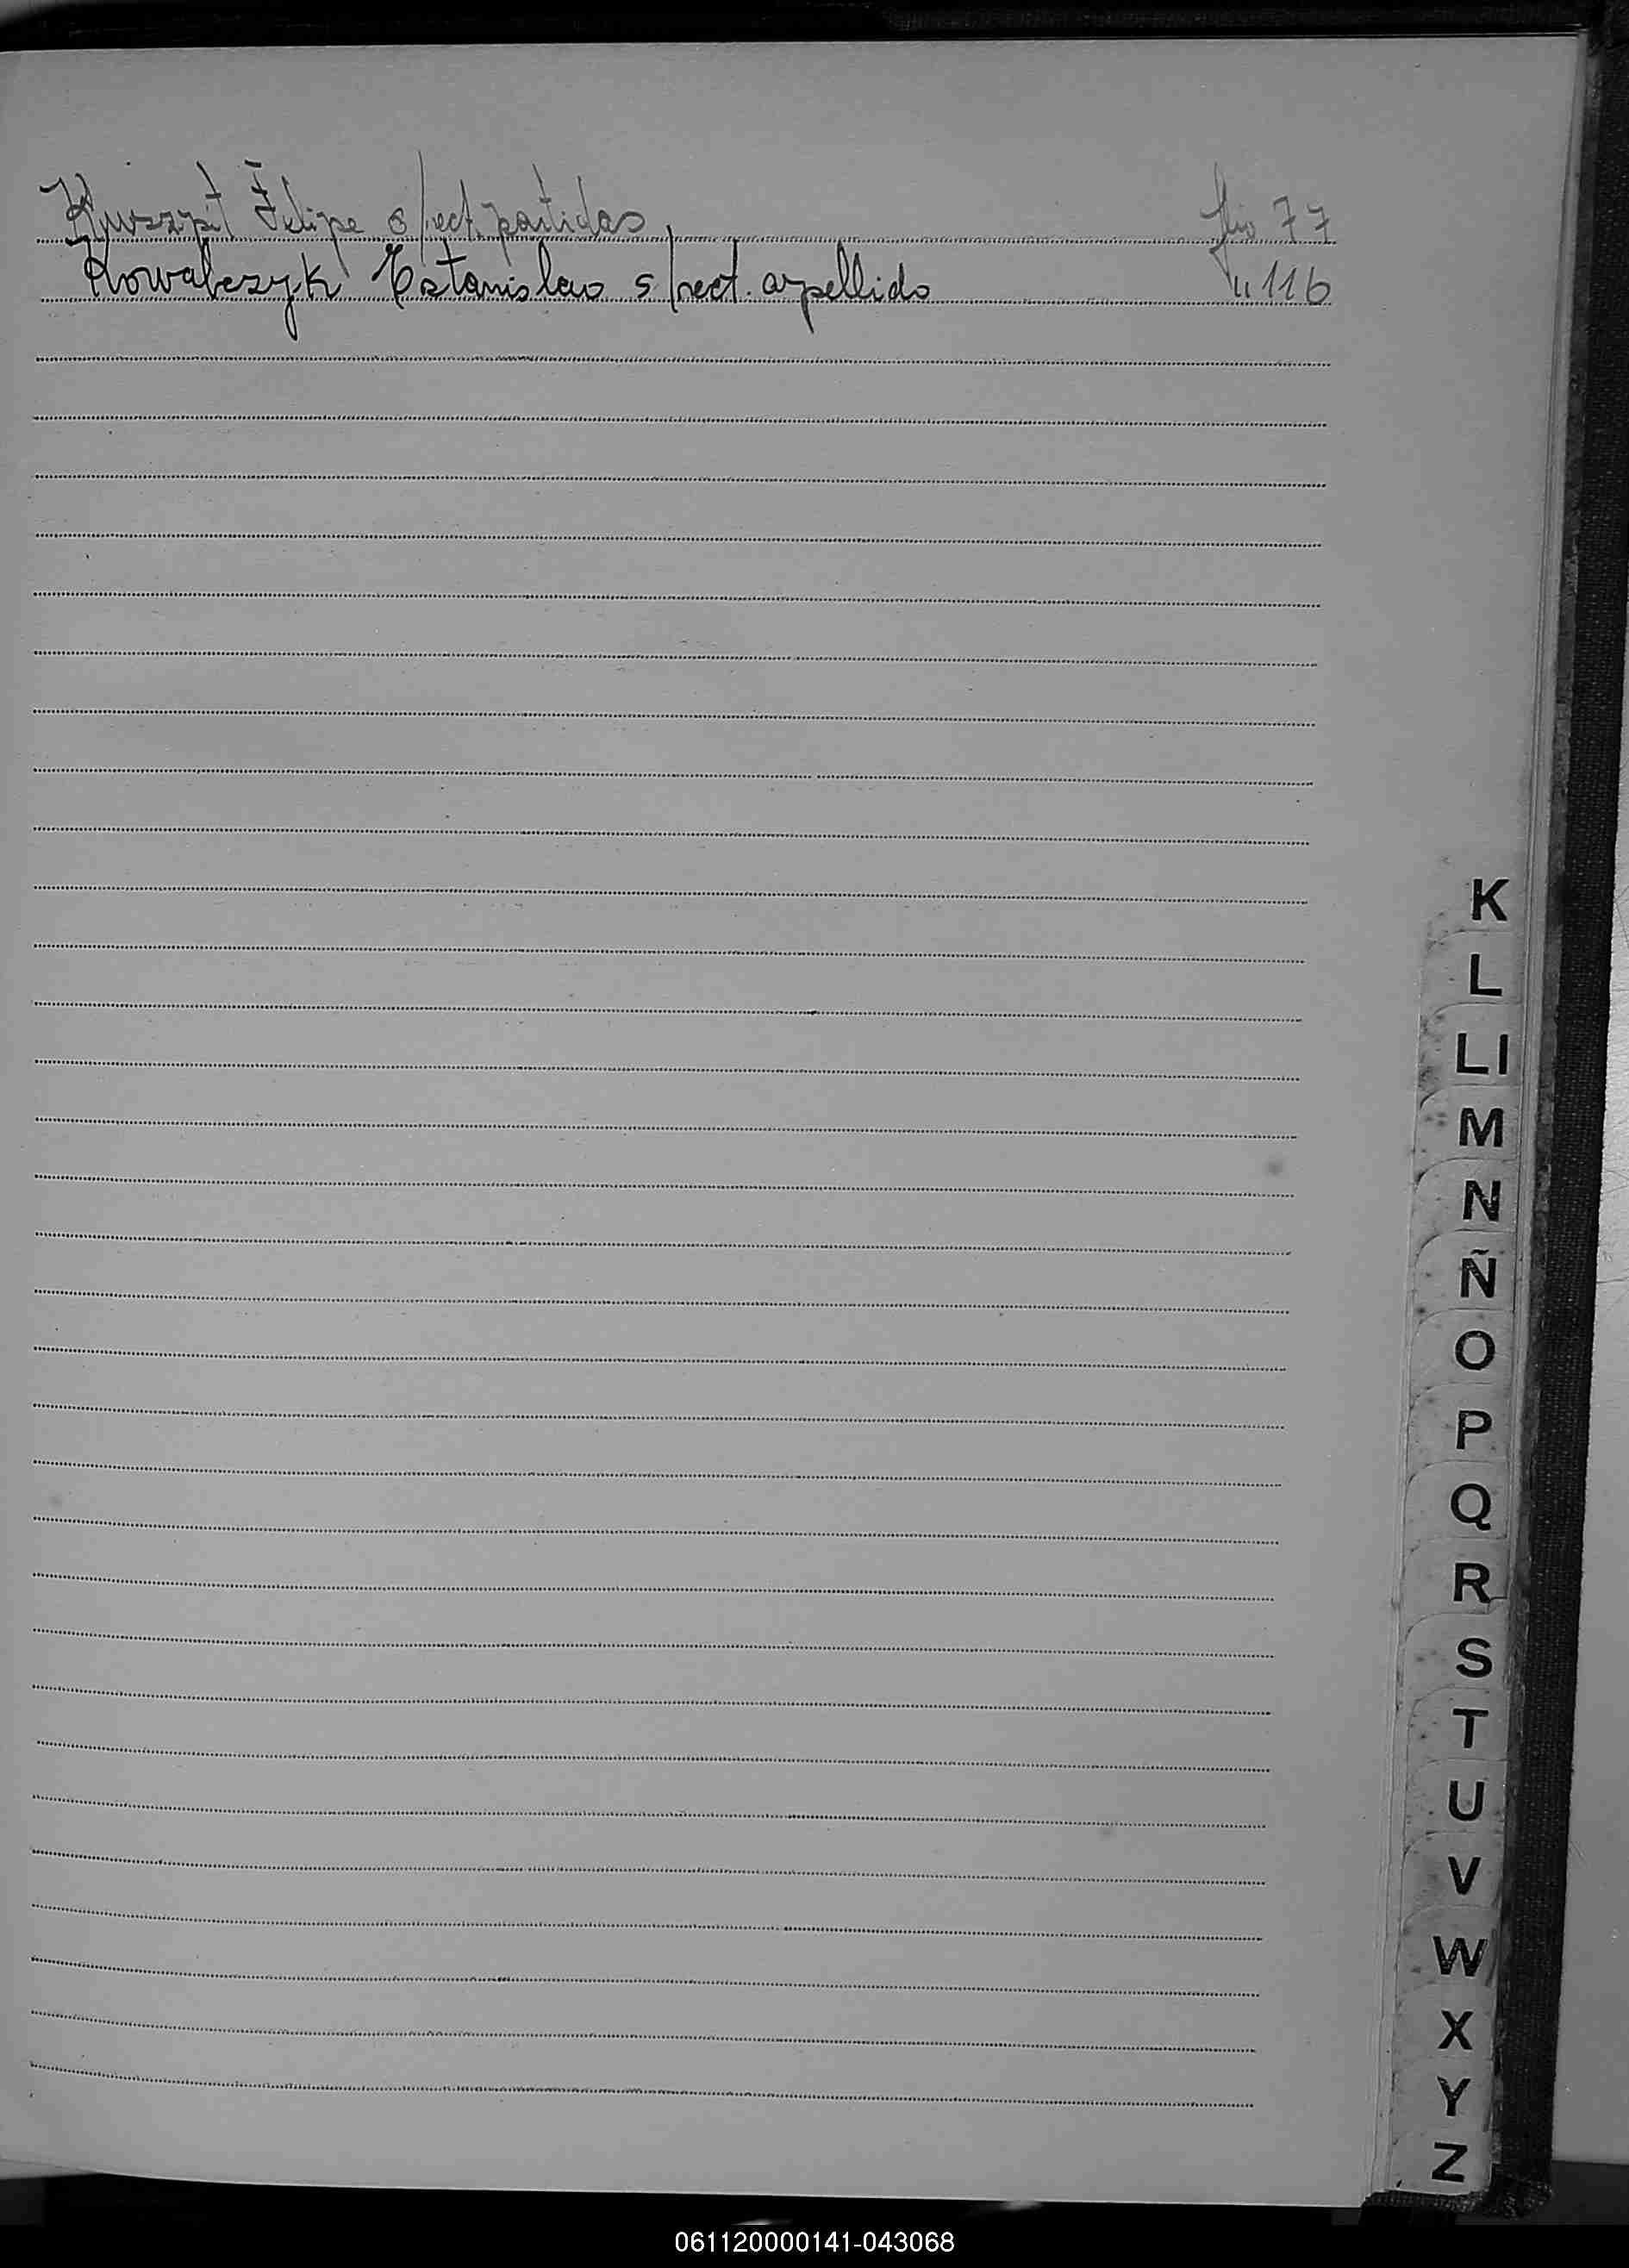 Felipe s/rect. partidas flio 77
Kowalczyk Estanislao s/rect. apellido " 116
K
L
Ll
M
N
Ñ
O
P
Q
R
S
T
U
V
W
X
Y
Z
061120000141-043068